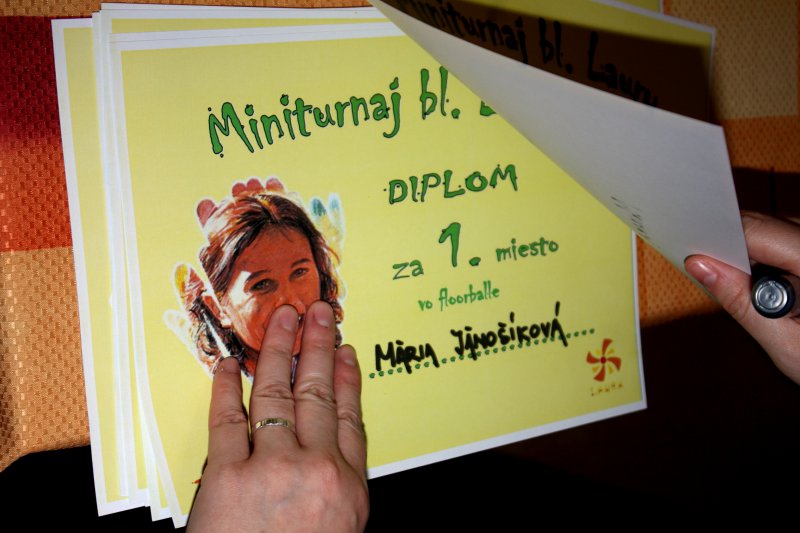 Miniturnaj bl. Laury
Miniturnaj bl.
DIPLOM
za 1. miesto
vo floorballe
MÁRIA JÁNOŠÍKOVÁ
LAURA